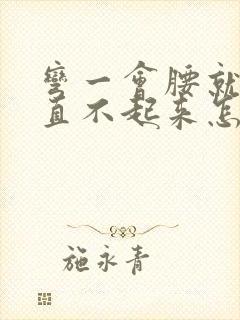 彎一會腰就
直不起来怎
施永青